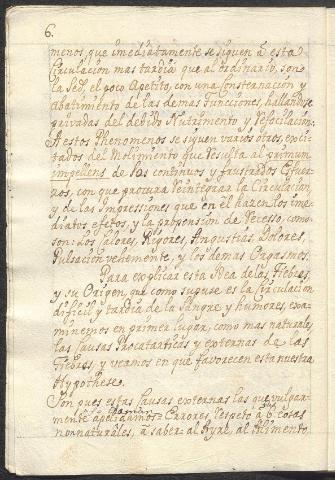 6.
menos, que imediatamente se siguen â esta
Circulacion mas tardia que al ordinario, son
la Sed, el poco Apetito, con una consternacion y
abatimiento de las demas funciones, hallandose
privadas del debido Nutrimento y Refocilacion.
A estos Phenomenos se siguen varios otros, exci-
tados del Molimiento que resulta al primum
impellens de los continuos y frustrados Esfuer-
zos, con que procura reintegrar la Circulacion,
y de las Impressiones que en êl hazen los ime-
diatos efetos, y la propension de Veresso, como
son: los Calores, Rigores, Angustias, Dolores,
Pulsacion vehemente, y los demas Orgasmos.
Para explicar esta Idea de las Fiebres,
y su Origen, que como supuse es la Circulacion
dificil y tardia de la Sangre y humores, exa-
minemos en primer lugar, como mas naturales,
las Causas Procatarticas y externas de las
Fiebres, y veamos en que favorecen esta nuestra
Hypothese.
Son pues estas Causas externas las que vulgar-
mente apellidamos Errores, respeto â 6 cosas
non naturales, â saber: al Ayre, al Alimento,